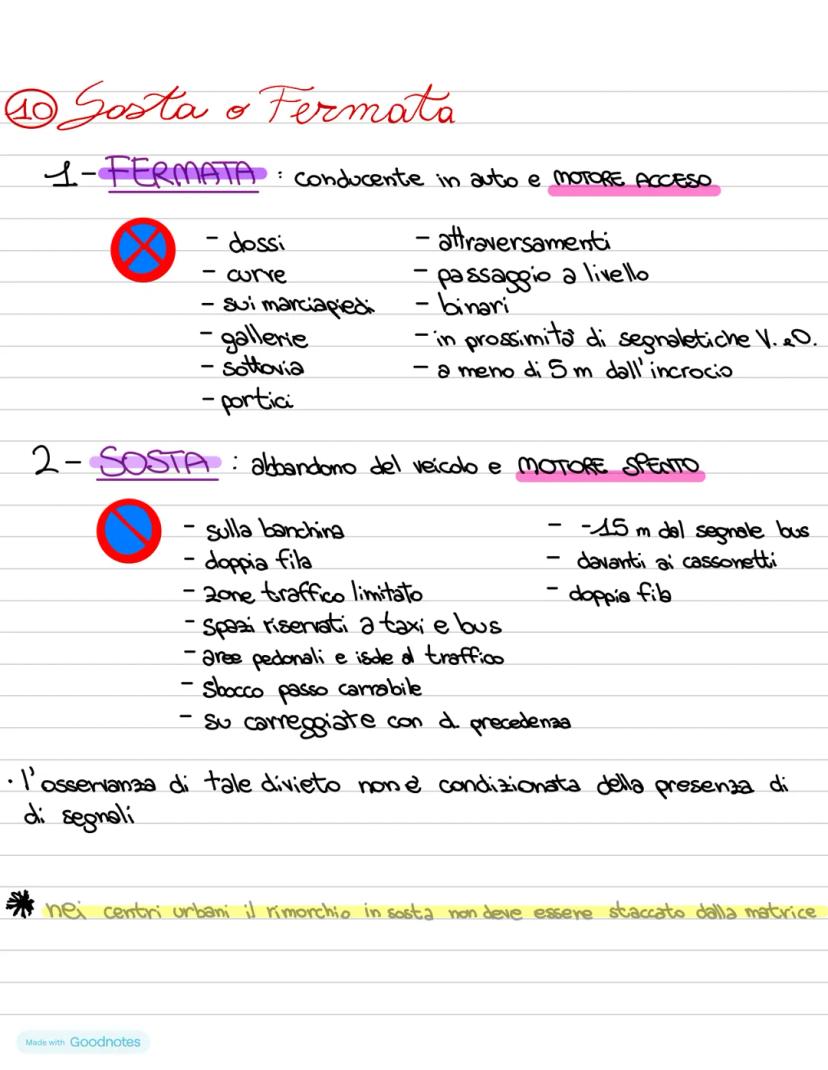 10 Sosta o Fermata
1- FERMATA : conducente in auto e MOTORE ACCESO
- dossi
- curve
- sui marciapiedi
- gallerie
- sottovia
- portici
- attraversamenti
- passaggio a livello
- binari
- in prossimità di segnaletiche V. e O.
- a meno di 5 m dall'incrocio
2- SOSTA : abbandono del veicolo e MOTORE SPENTO
- sulla banchina
- doppia fila
- zone traffico limitato
- spazi riservati a taxi e bus
- aree pedonali e isole d traffico
- sbocco passo carrabile
- su carreggiate con d. precedenza
- -15 m dal segnale bus
- davanti ai cassonetti
- doppia fila
· l'osservanza di tale divieto non è condizionata della presenza di
di segnali
* nei centri urbani il rimorchio in sosta non deve essere staccato dalla matrice
Made with Goodnotes